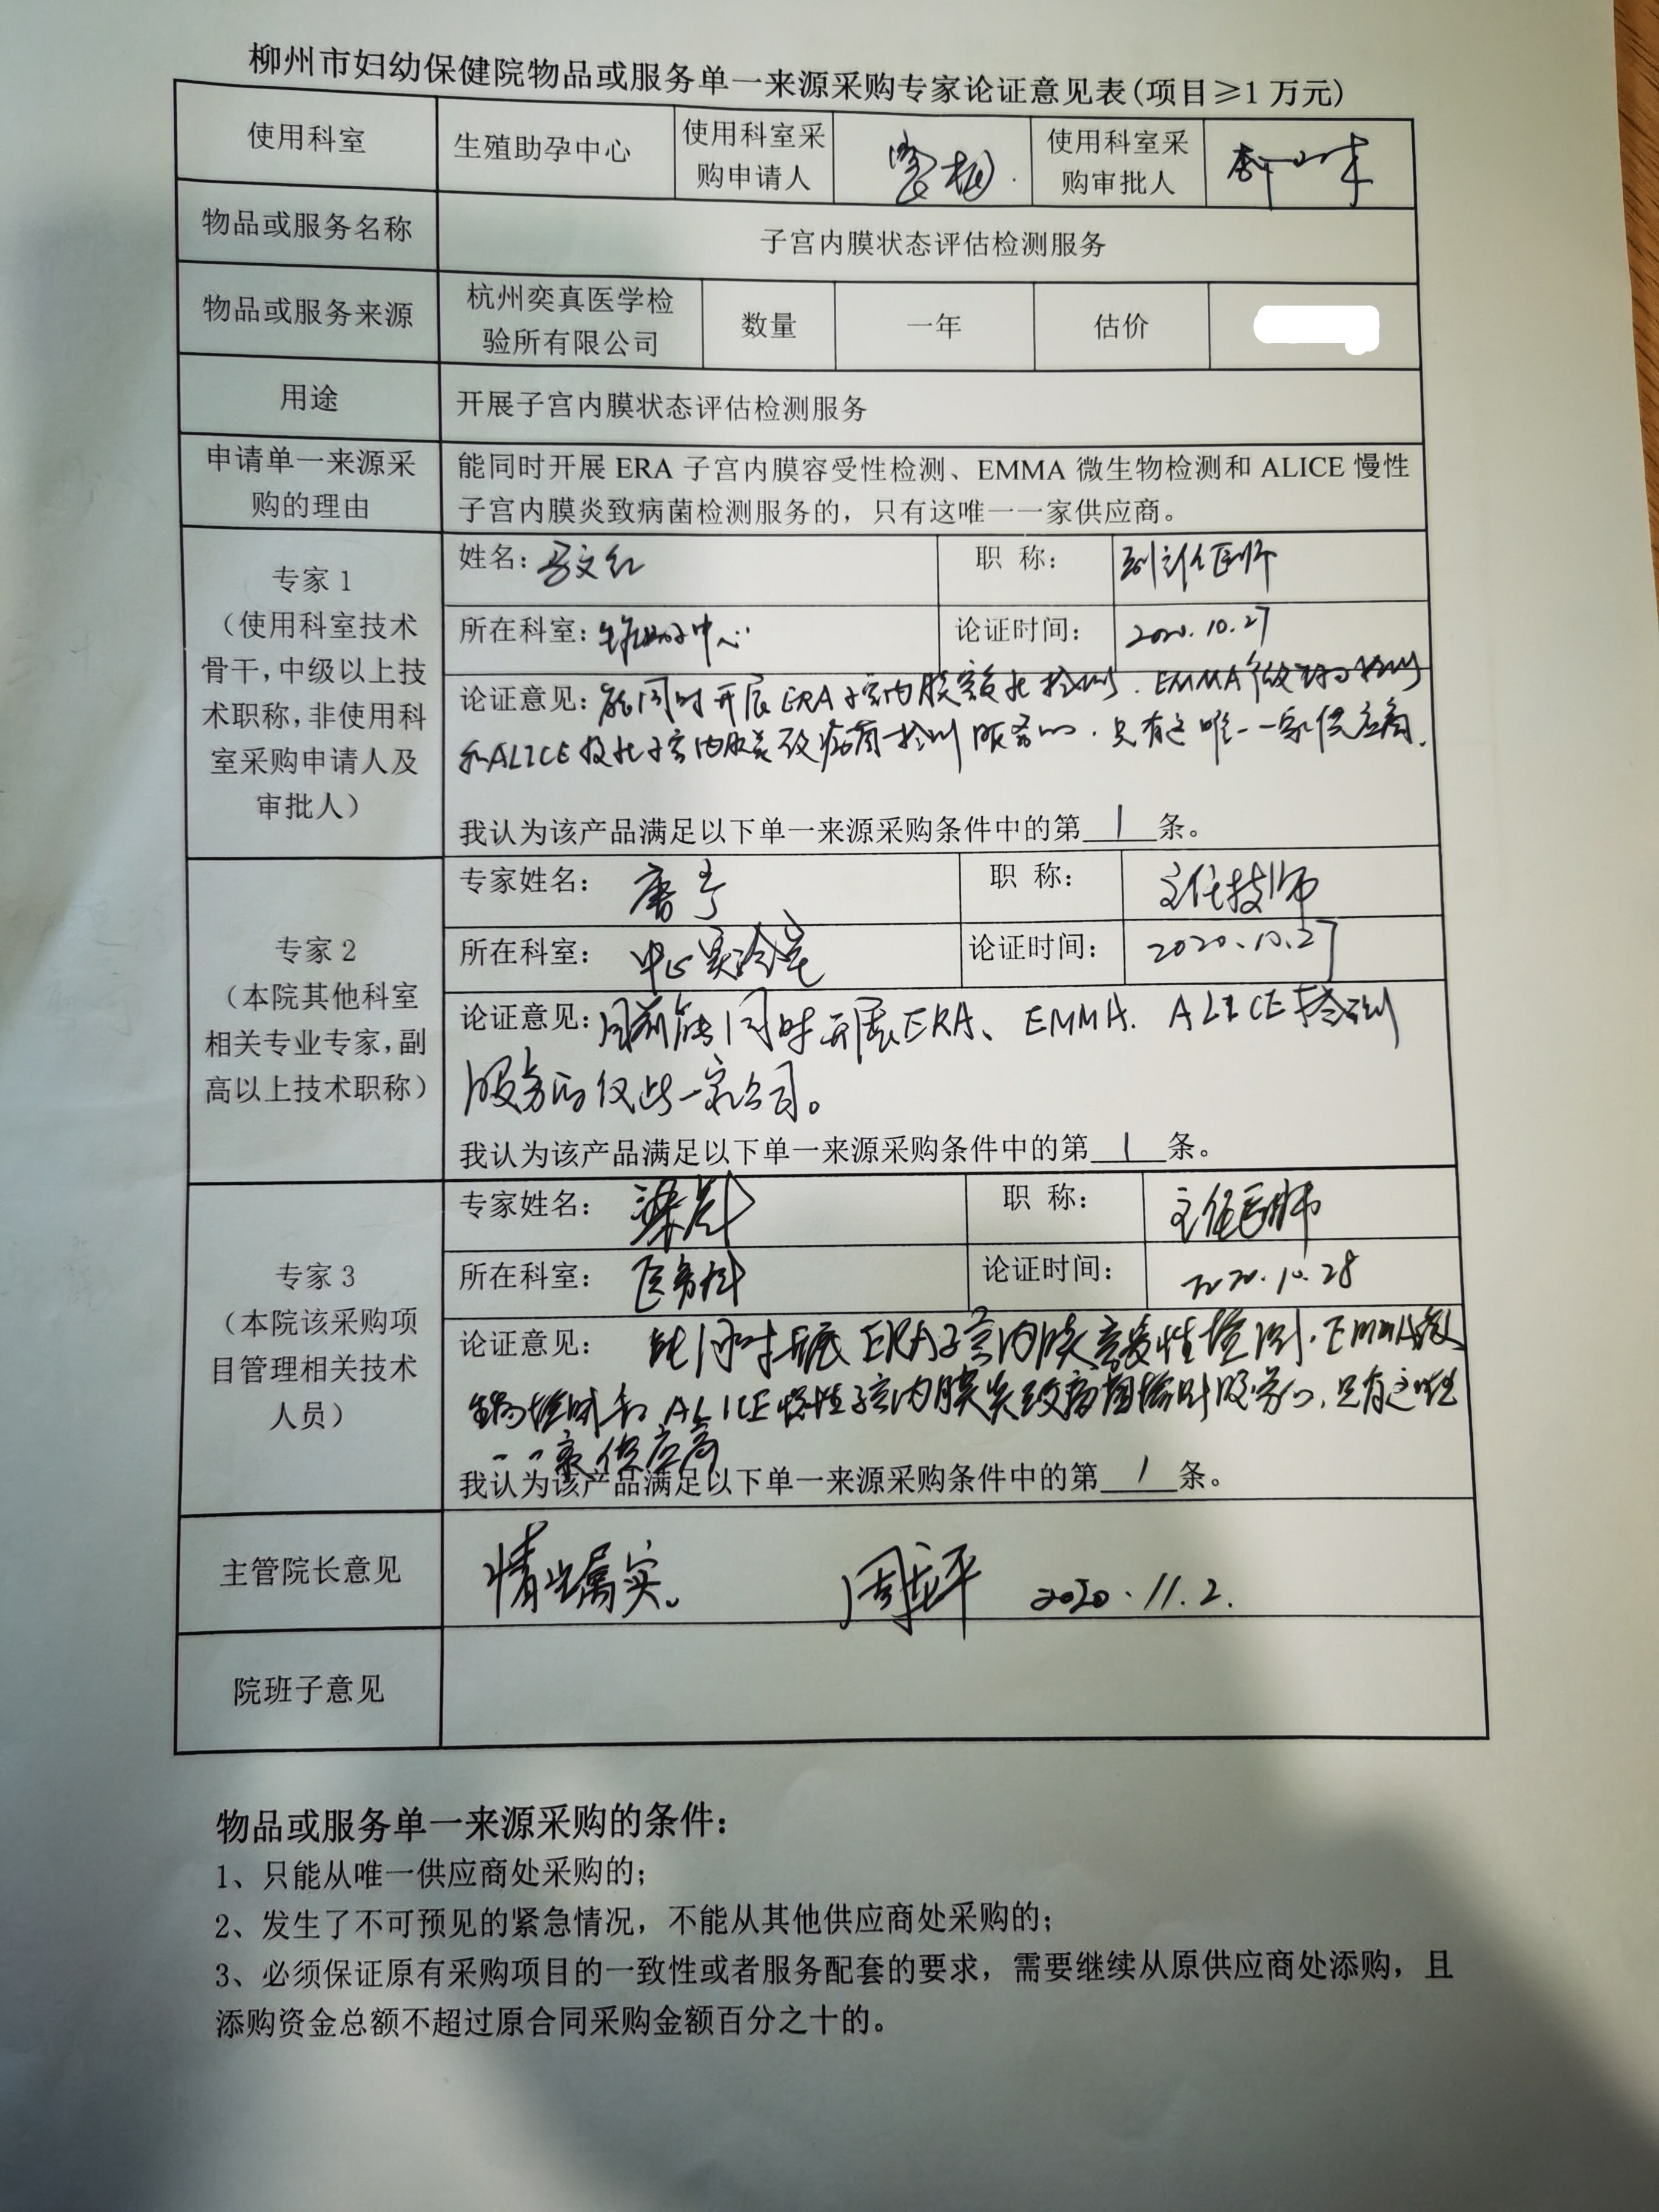 柳州市妇幼保健院物品或服务单一来源采购专家论证意见表(项目≥1万元)
使用科室 生殖助孕中心 使用科室采购申请人 使用科室采购审批人
物品或服务名称 子宫内膜状态评估检测服务
物品或服务来源 杭州奕真医学检验所有限公司 数量 一年 估价
用途 开展子宫内膜状态评估检测服务
申请单一来源采购的理由
能同时开展 ERA 子宫内膜容受性检测、EMMA 微生物检测和 ALICE 慢性
子宫内膜炎致病菌检测服务的，只有这唯一一家供应商。
专家1
（使用科室技术
骨干,中级以上技
术职称,非使用科
室采购申请人及
审批人）
姓名: 马文红 职 称: 副主任医师
所在科室: 生殖助孕中心 论证时间: 2020.10.27
论证意见: 能同时开展ERA子宫内膜容受性检测、EMMA微生物检测
和ALICE慢性子宫内膜炎致病菌检测服务的，只有这唯一一家供应商。
我认为该产品满足以下单一来源采购条件中的第 1 条。
专家2
（本院其他科室
相关专业专家,副
高以上技术职称）
专家姓名: 唐宁 职 称: 主任技师
所在科室: 中心实验室 论证时间: 2020.10.27
论证意见: 目前能同时开展ERA、EMMA、ALICE检测
服务的仅此一家公司。
我认为该产品满足以下单一来源采购条件中的第 1 条。
专家3
（本院该采购项
目管理相关技术
人员）
专家姓名: 职 称: 主任医师
所在科室: 医务科 论证时间: 2020.10.28
论证意见: 能同时开展ERA子宫内膜容受性检测、EMMA微
生物检测和ALICE慢性子宫内膜炎致病菌检测服务的，只有这唯
一一家供应商
我认为该产品满足以下单一来源采购条件中的第 1 条。
主管院长意见 情况属实。 2020.11.2.
院班子意见
物品或服务单一来源采购的条件：
1、只能从唯一供应商处采购的；
2、发生了不可预见的紧急情况，不能从其他供应商处采购的；
3、必须保证原有采购项目的一致性或者服务配套的要求，需要继续从原供应商处添购，且
添购资金总额不超过原合同采购金额百分之十的。